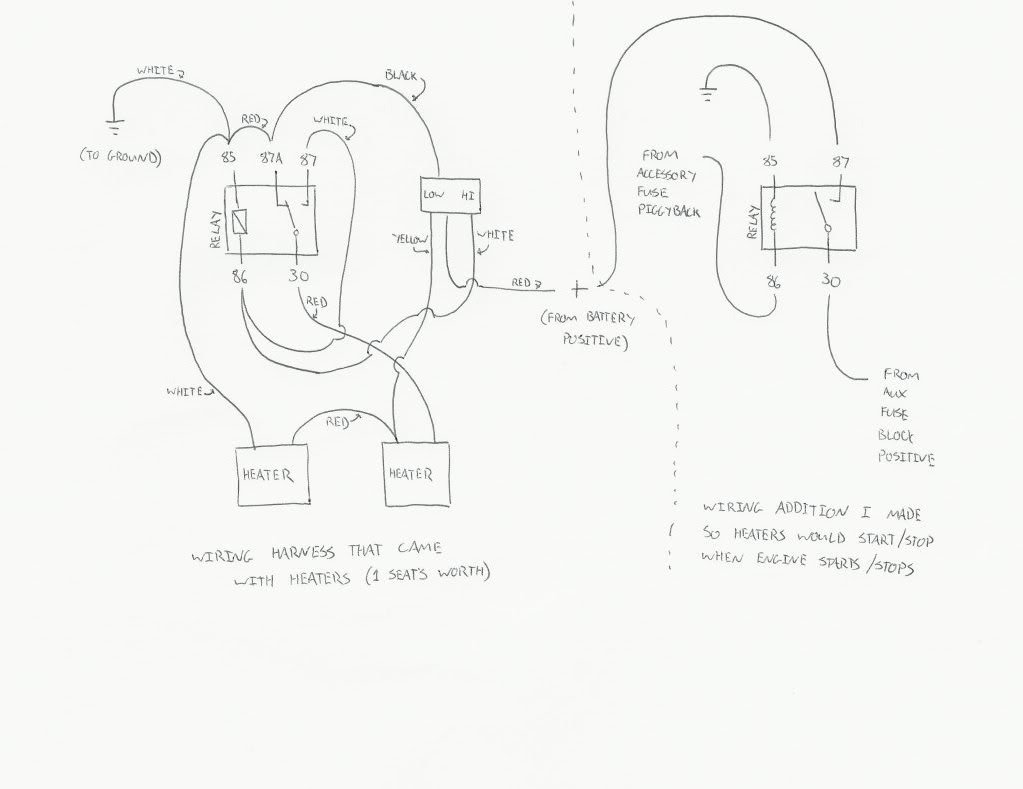 WHITE
BLACK
RED
WHITE
(TO GROUND)
85 87A 87
LOW HI
RELAY
YELLOW
WHITE
86 30
RED
RED
(FROM BATTERY
POSITIVE)
WHITE
RED
HEATER
HEATER
WIRING HARNESS THAT CAME
WITH HEATERS (1 SEAT'S WORTH)
FROM
ACCESSORY
FUSE
PIGGYBACK
85 87
RELAY
86 30
FROM
AUX
FUSE
BLOCK
POSITIVE
WIRING ADDITION I MADE
SO HEATERS WOULD START/STOP
WHEN ENGINE STARTS/STOPS